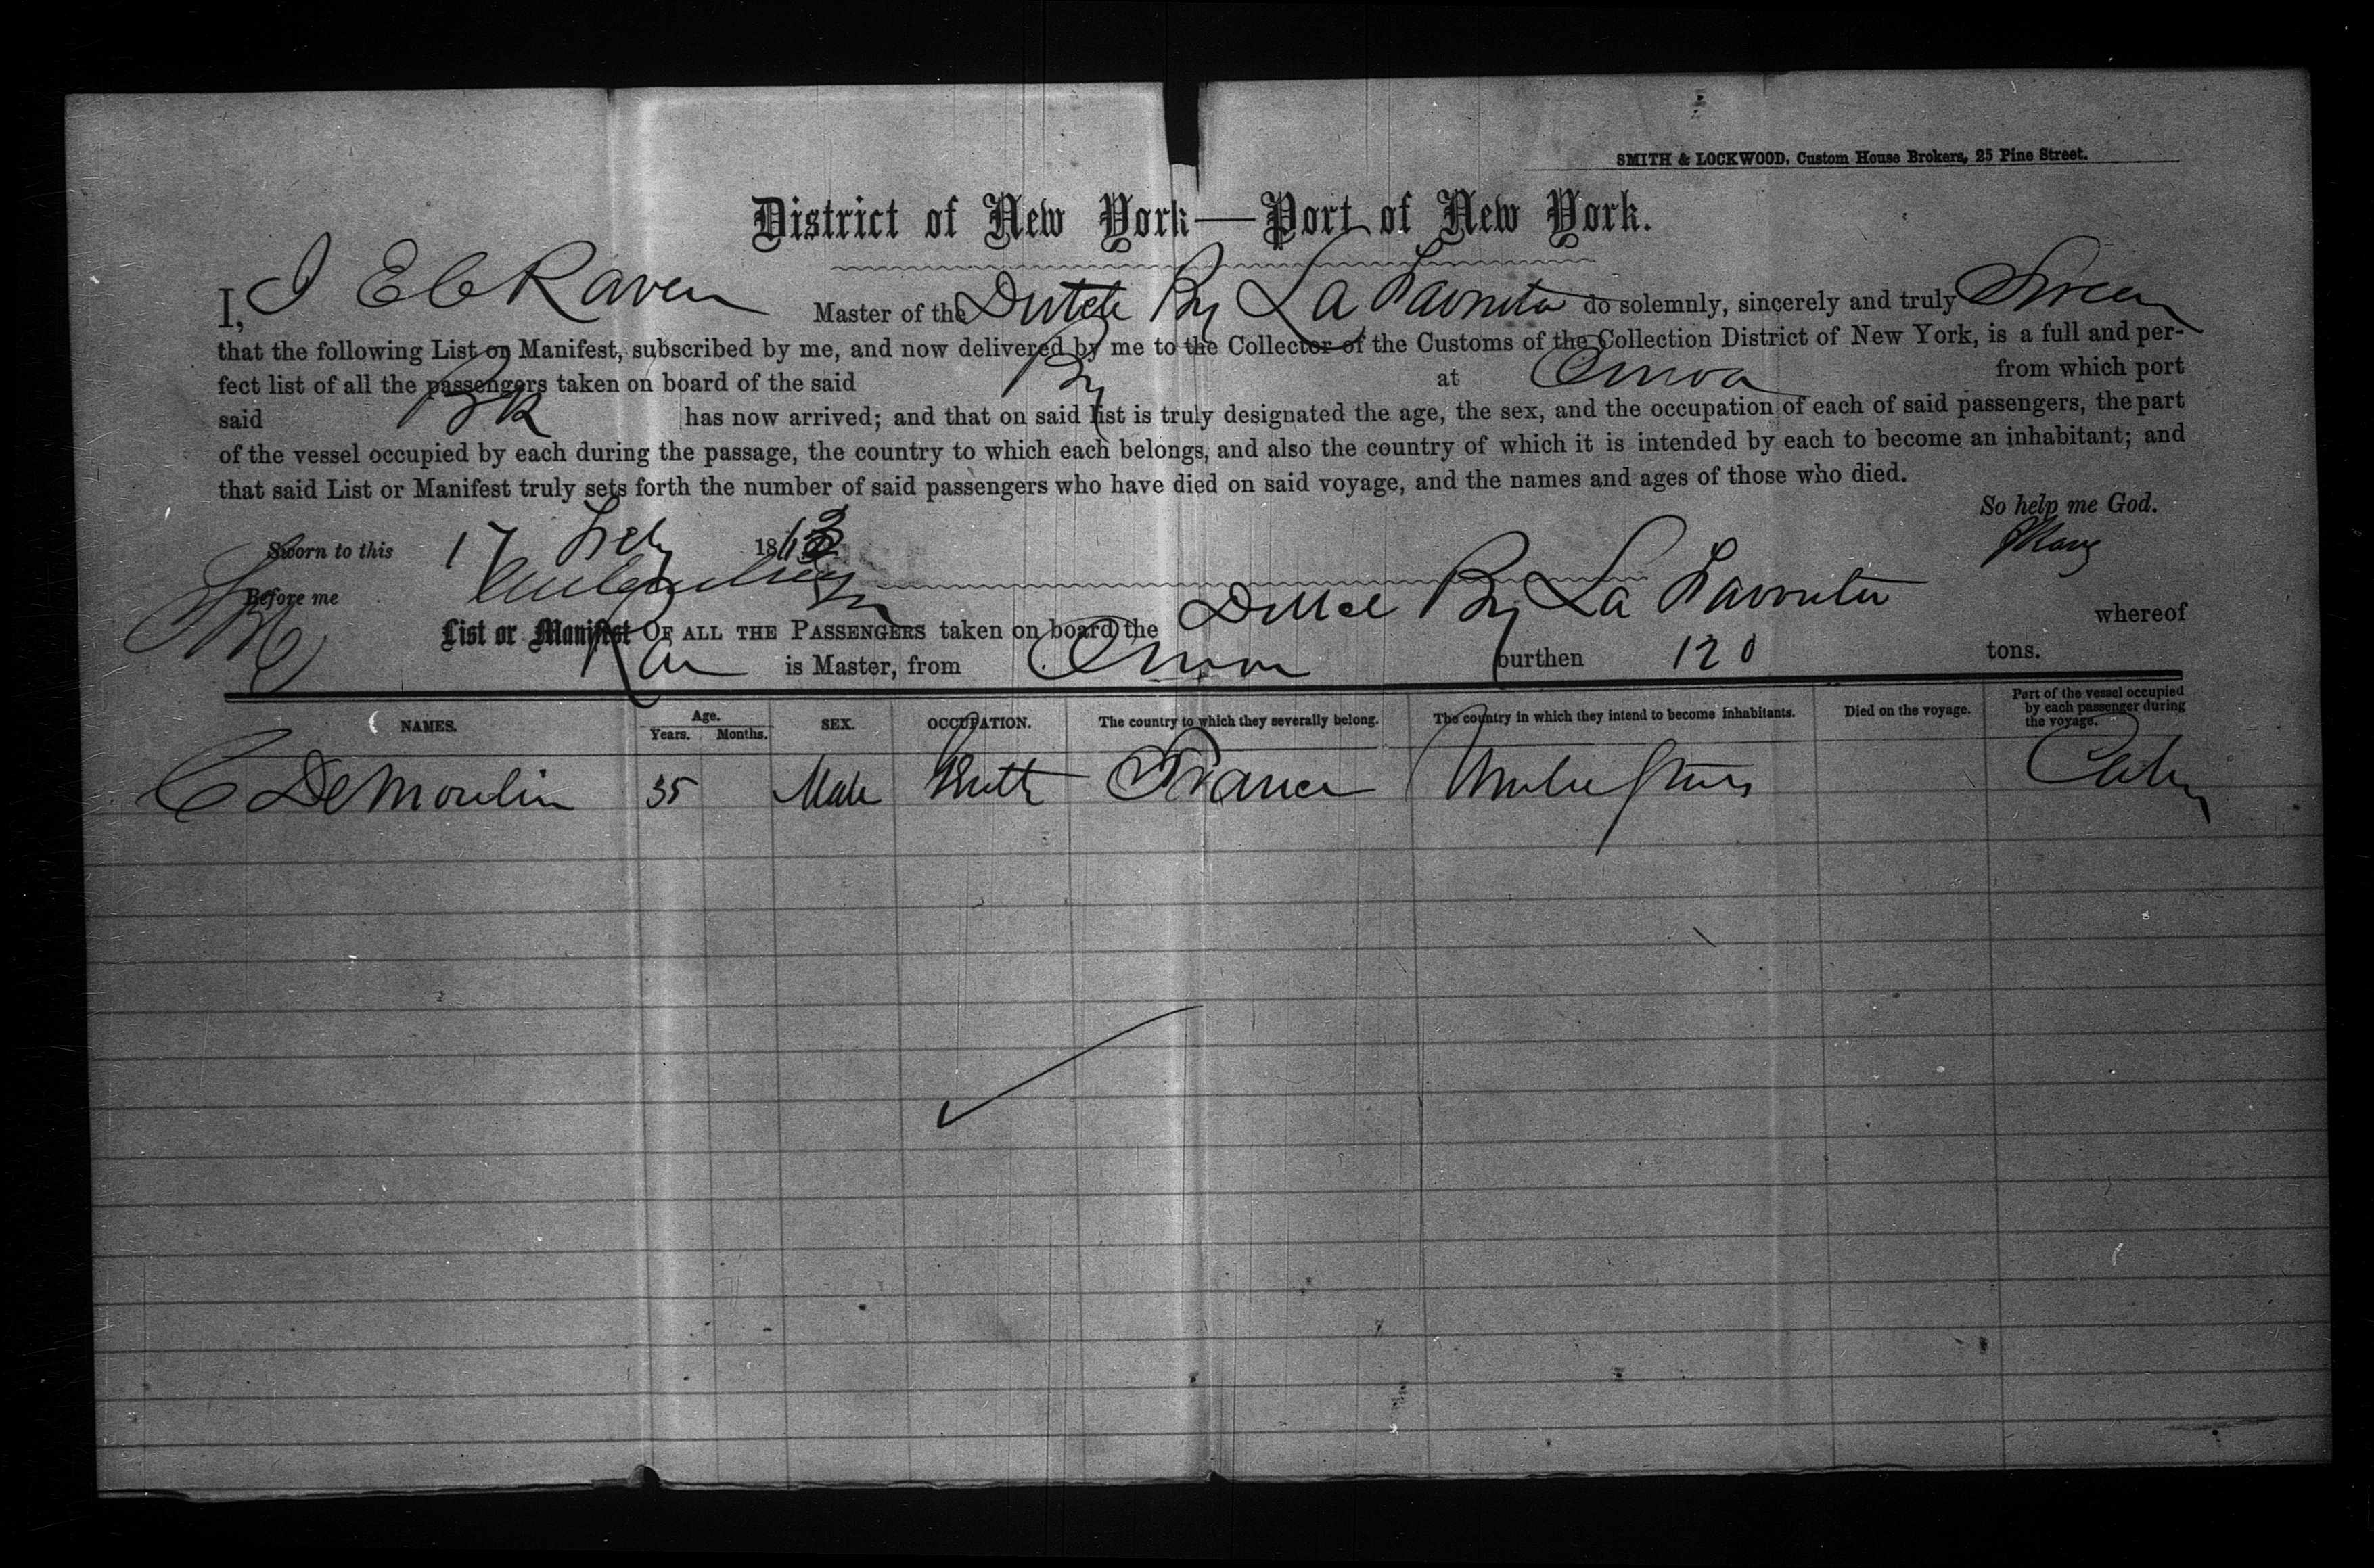 SMITH & LOCKWOOD, Custom House Brokers, 25 Pine Street.
District of New York—Port of New York.
I, I E C Raven Master of the Dutch Bg La Favorita do solemnly, sincerely and truly Swear
that the following List or Manifest, subscribed by me, and now delivered by me to the Collector of the Customs of the Collection District of New York, is a full and per-
fect list of all the passengers taken on board of the said Bg at from which port
said Bk has now arrived; and that on said list is truly designated the age, the sex, and the occupation of each of said passengers, the part
of the vessel occupied by each during the passage, the country to which each belongs, and also the country of which it is intended by each to become an inhabitant; and
that said List or Manifest truly sets forth the number of said passengers who have died on said voyage, and the names and ages of those who died.
So help me God.
Sworn to this 17 Feby 18
Before me
List or Manifest OF ALL THE PASSENGERS taken on board the Dutch Bg La Favorita whereof
is Master, from burthen 120 tons.
NAMES. Age. Years. Months. SEX. OCCUPATION. The country to which they severally belong. The country in which they intend to become inhabitants. Died on the voyage. Part of the vessel occupied by each passenger during the voyage.
C DeMoulin 35 Male France United States Cabin